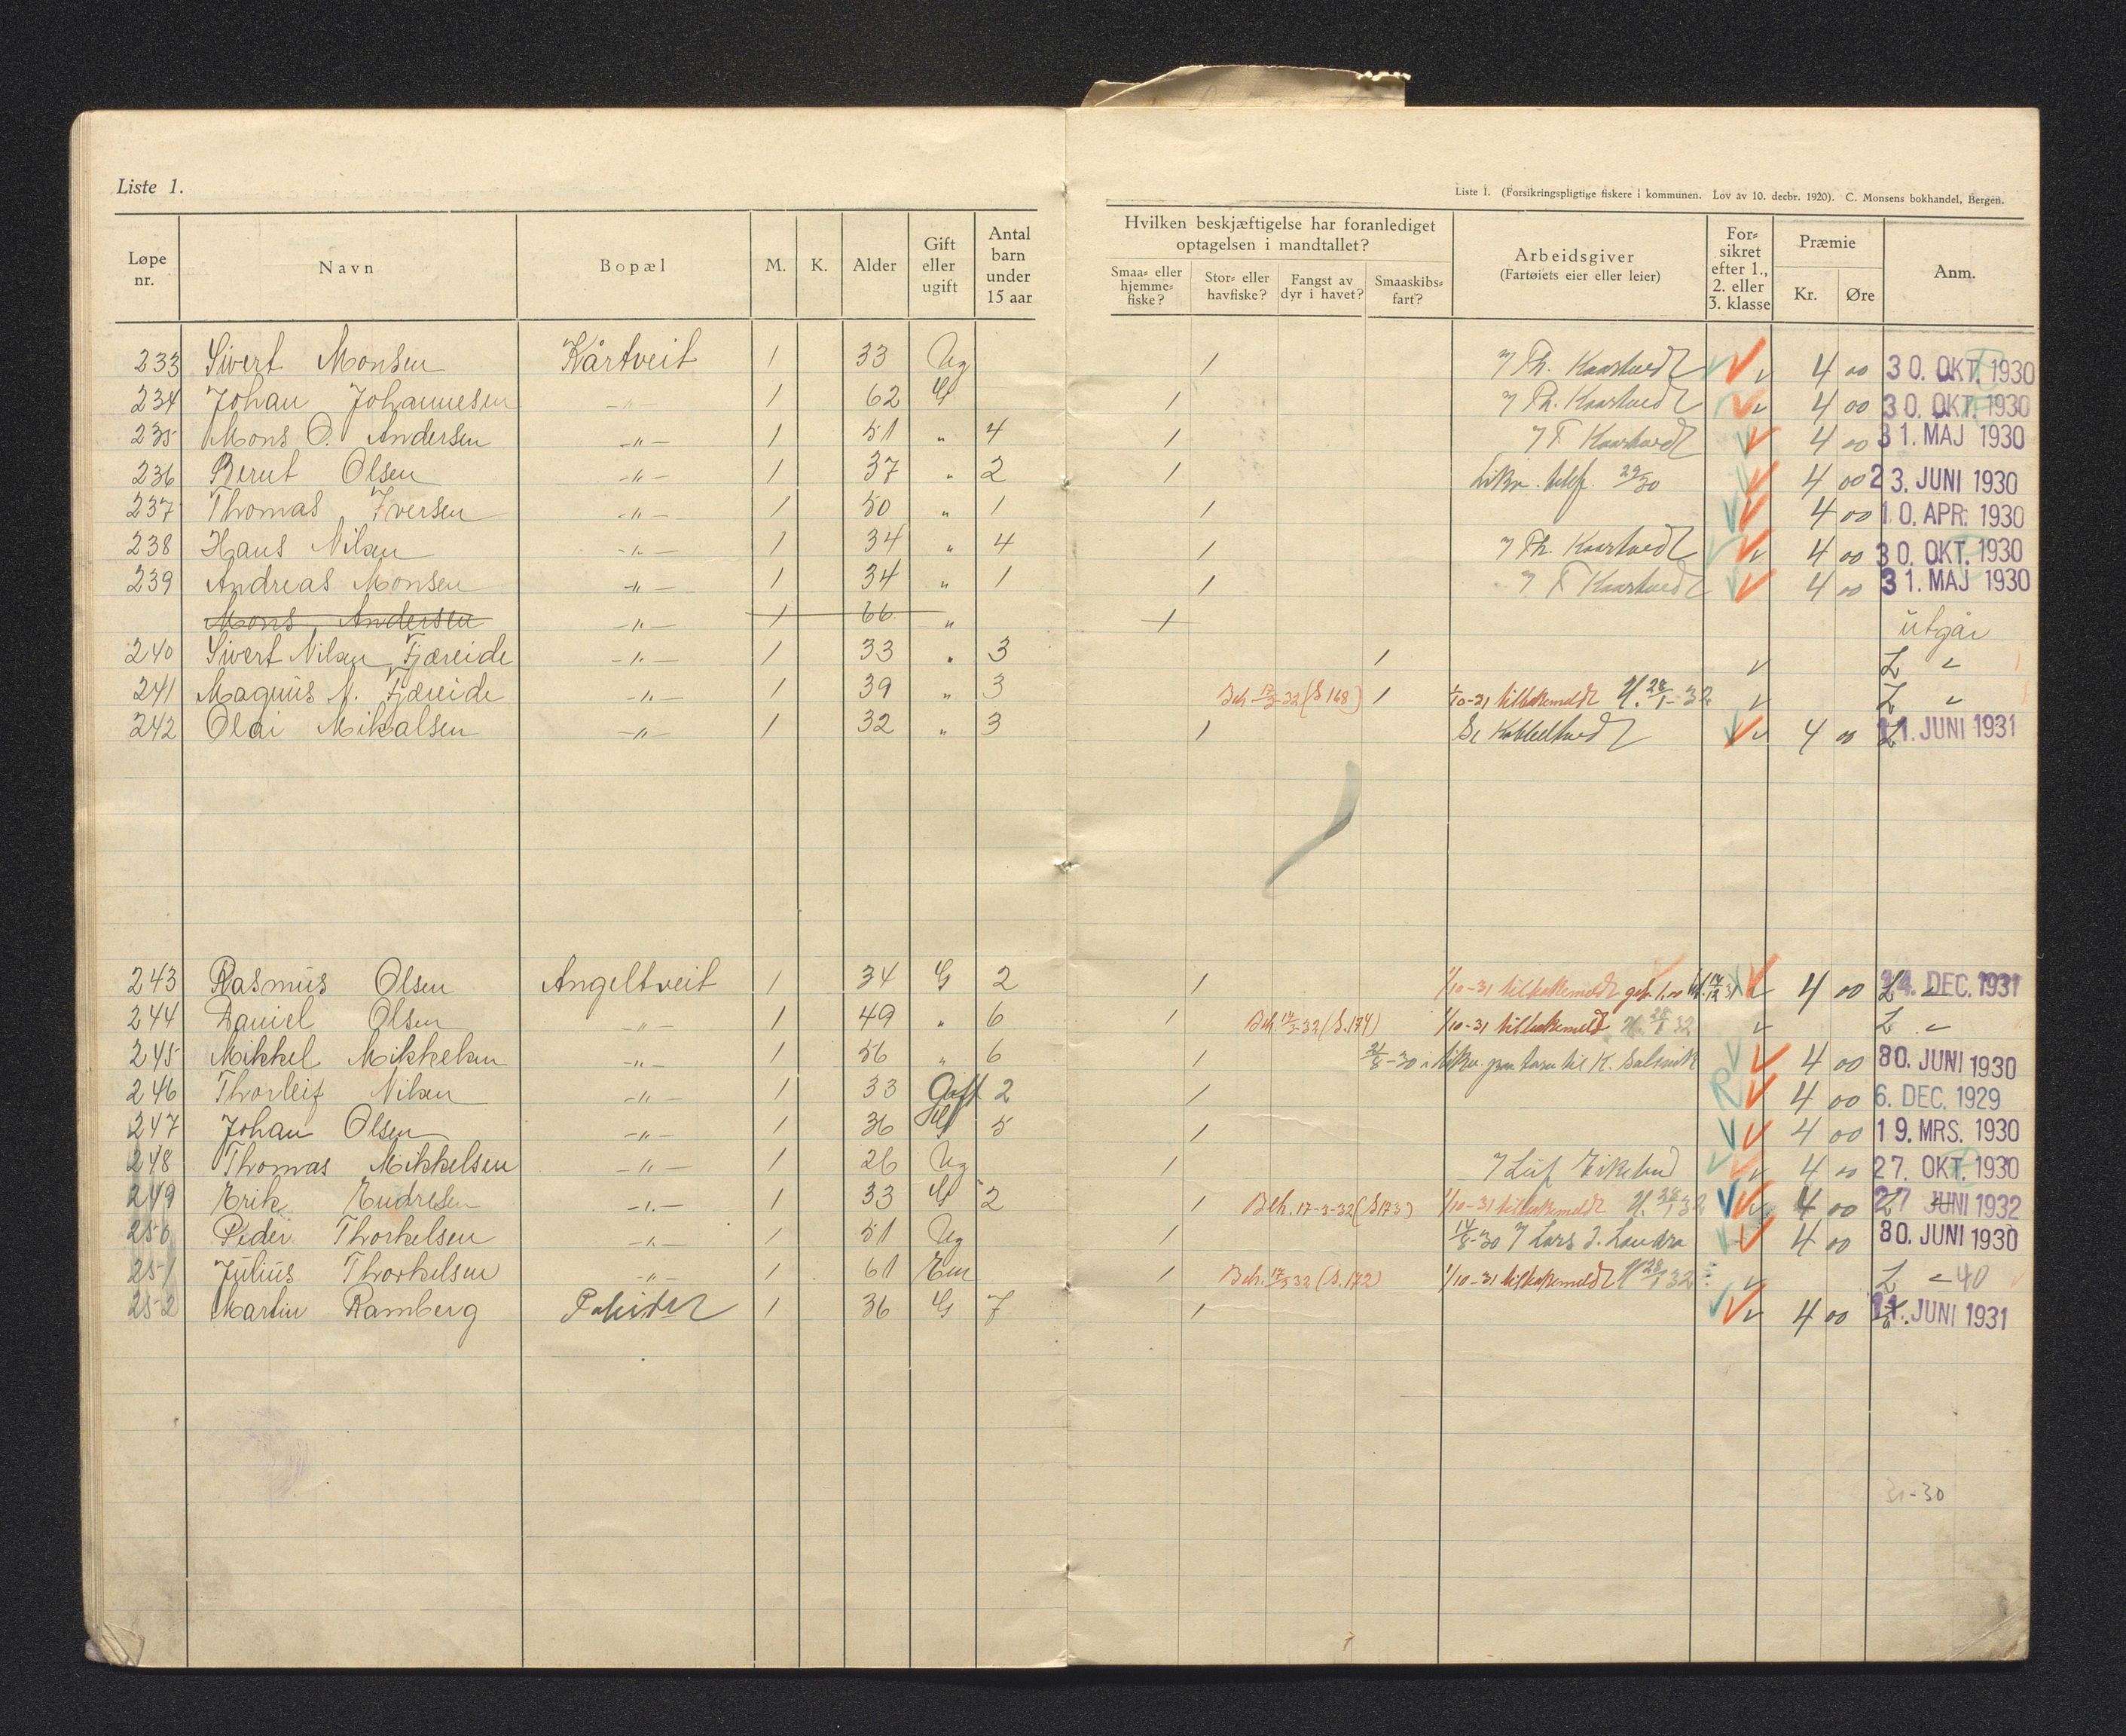 Liste 1.
Liste 1. (Forsikringspligtige fiskere i kommunen. Lov av 10. decbr. 1920). C. Monsens bokhandel, Bergen.
Løpe nr. Navn Bopæl M. K. Alder Gift eller ugift Antal barn under 15 aar
Hvilken beskjæftigelse har foranlediget optagelsen i mandtallet?
Smaa- eller hjemme-fiske? Stor- eller havfiske? Fangst av dyr i havet? Smaaskibs-fart?
Arbeidsgiver (Fartøiets eier eller leier) For-sikret efter 1., 2. eller 3. klasse Præmie Kr. Øre Anm.
233 Sivert Monsen Kårtveit 1 33 Ug 1 Th. Kaartvedt 4 00 30. OKT. 1930
234 Johan Johannesen -"- 1 62 G 1 Th. Kaartvedt 4 00 30. OKT. 1930
235 Mons O. Andersen -"- 1 51 " 4 1 T. Kaartvedt 4 00 31. MAJ 1930
236 Bernt Olsen -"- 1 37 " 2 1 4 00 23. JUNI 1930
237 Thomas Iversen -"- 1 50 " 1 1 4 00 10. APR. 1930
238 Hans Nilsen -"- 1 34 " 4 1 Th. Kaartvedt 4 00 30. OKT. 1930
239 Andreas Monsen -"- 1 34 " 1 1 T Kaartvedt 4 00 31. MAJ 1930
Mons Andersen -"- 1 66 " 1 utgår
240 Sivert Nilsen Fjæreide -"- 1 33 " 3 1 L "
241 Magnus N. Fjæreide -"- 1 39 " 3 Beh. 17/3-32 (S 168) 1 1/10-31 tilbakemeldt 28/1-32 L "
242 Olai Mikalsen -"- 1 32 " 3 1 4 00 11. JUNI 1931
243 Rasmus Olsen Angeltveit 1 34 G 2 1 1/10-31 tilbakemeldt 4 00 14. DEC. 1931
244 Daniel Olsen -"- 1 49 " 6 1 Beh. 17/3-32 (S. 174) 1/10-31 tilbakemeldt 28/1 32 L "
245 Mikkel Mikkelsen -"- 1 56 " 6 1 4 00 30. JUNI 1930
246 Thorleif Nilsen -"- 1 33 Gift 2 1 4 00 6. DEC. 1929
247 Johan Olsen -"- 1 36 G 5 1 4 00 19. MRS. 1930
248 Thomas Mikkelsen -"- 1 26 Ug 1 4 00 27. OKT. 1930
249 Erik Endresen -"- 1 33 G 2 1 Beh. 17-3-32 (S 173) 1/10-31 tilbakemeldt 28/1 32 4 00 27 JUNI 1932
250 Peder Thorkelsen -"- 1 51 Ug 1 14/8-30 Lars J. Landro 4 00 30. JUNI 1930
251 Julius Thorkelsen -"- 1 61 Em 1 Beh. 17/3 32 (S. 172) 1/10-31 tilbakemeldt 28/1 32 L " 40
252 Martin Ramberg 1 36 G 7 1 4 00 11. JUNI 1931
31-30